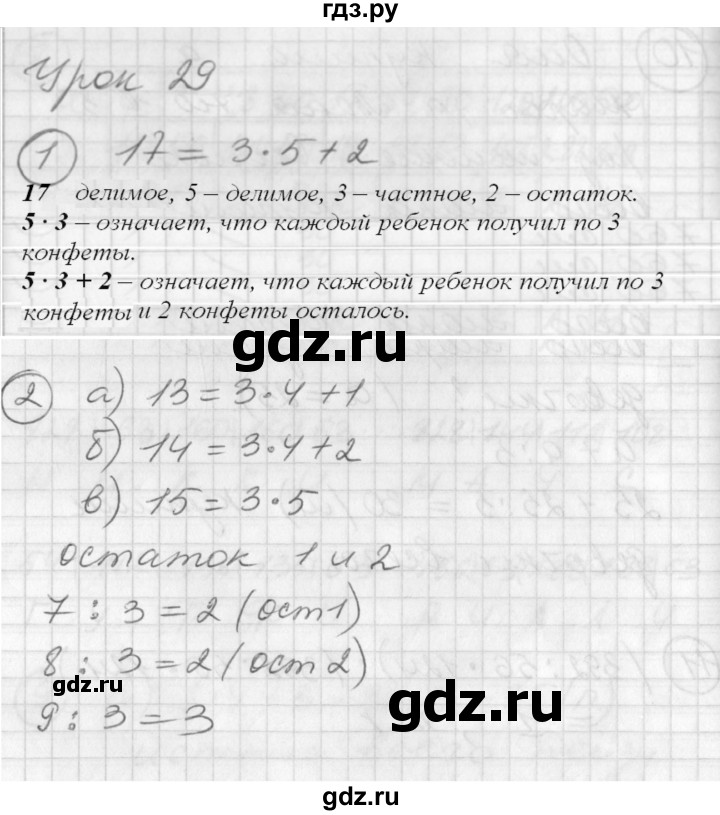 гдз.ру
Урок 29
1 17 = 3·5+2
17 делимое, 5 – делимое, 3 – частное, 2 – остаток.
5 · 3 – означает, что каждый ребенок получил по 3
конфеты.
5 · 3 + 2 – означает, что каждый ребенок получил по 3
конфеты и 2 конфеты осталось.
gdz.ru
2 а) 13 = 3·4+1
б) 14 = 3·4+2
в) 15 = 3·5
остаток 1 и 2
7 : 3 = 2 (ост1)
8 : 3 = 2 (ост 2)
gdz.ru
gdz.ru
9 : 3 = 3
gdz.ru